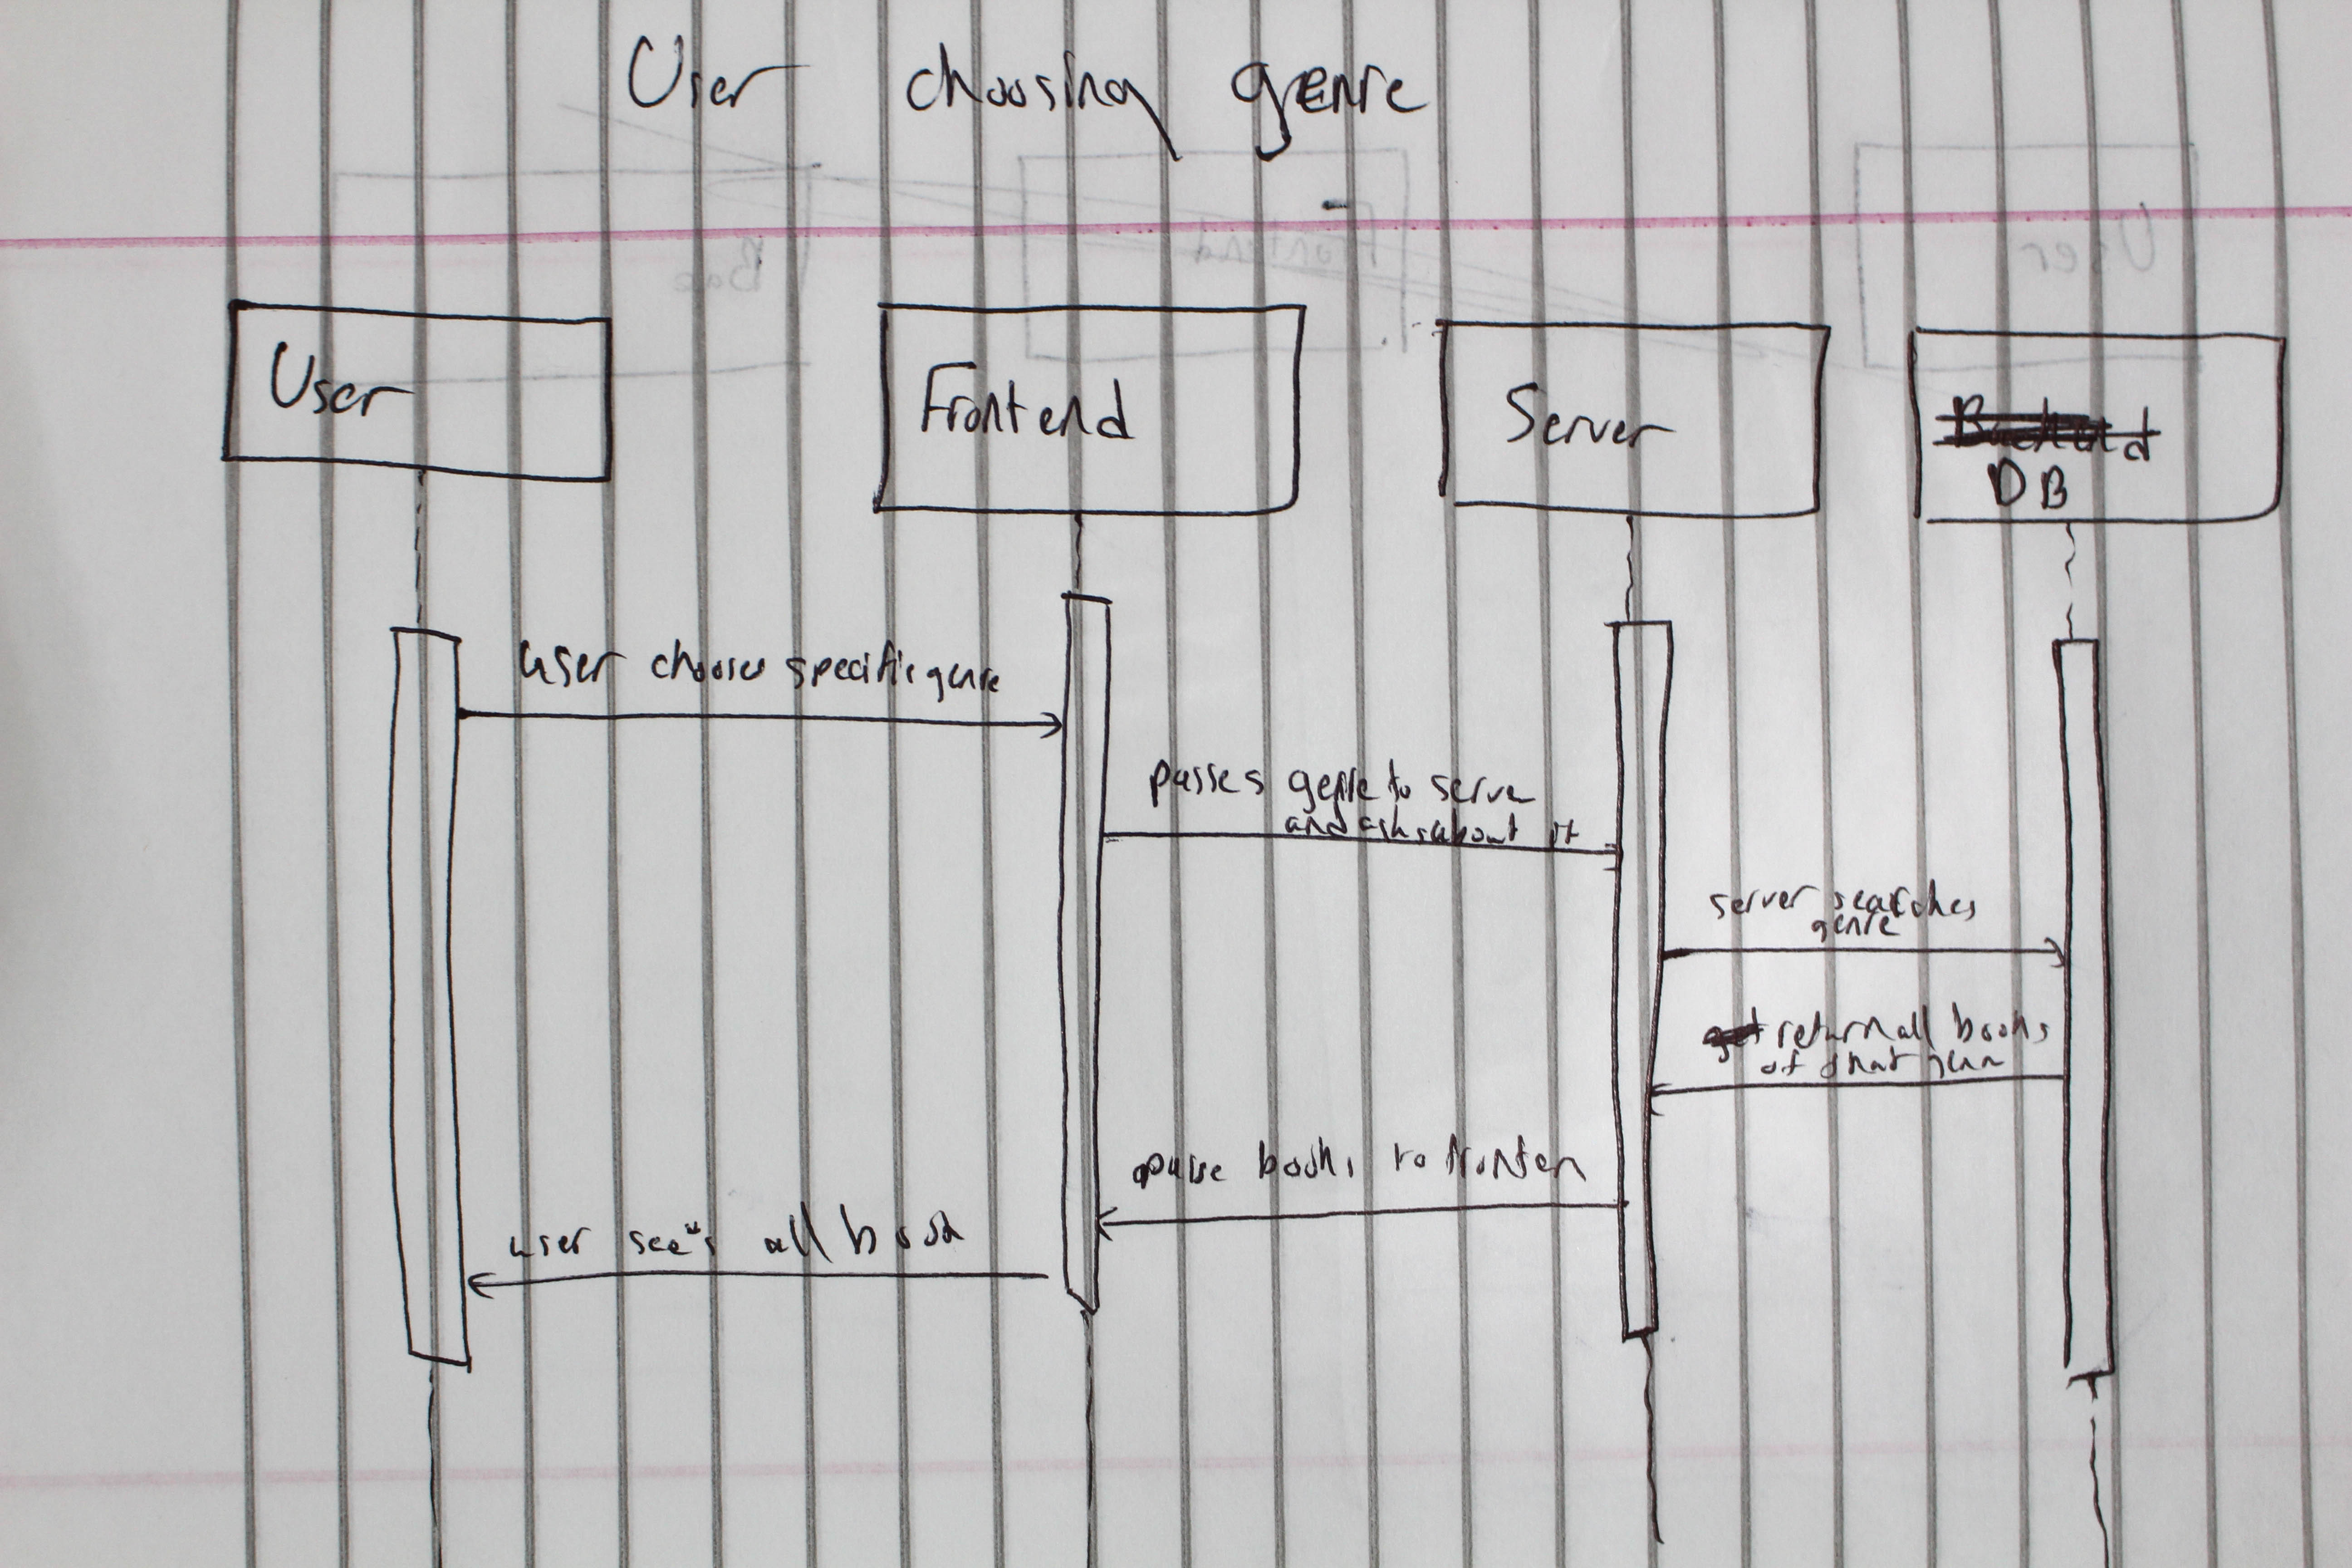 User choosing genre
User
Frontend
Server
DB
user chooses specific genre
passes genre to server
and asks about it
server searches
genre
return all books
of that
books to fronten
user see's all